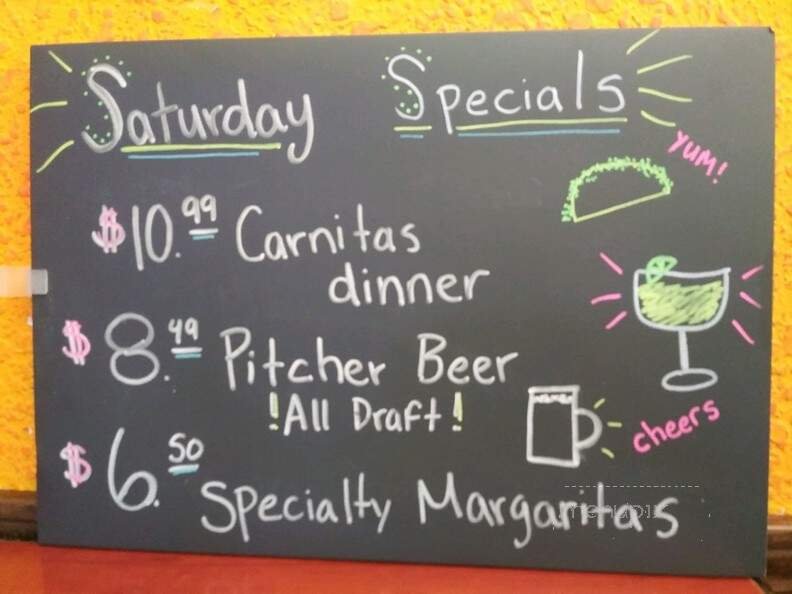 Saturday Specials
YUM!
$10.99 Carnitas
dinner
$8.49 Pitcher Beer
!All Draft!
cheers
$6.50 Specialty Margaritas